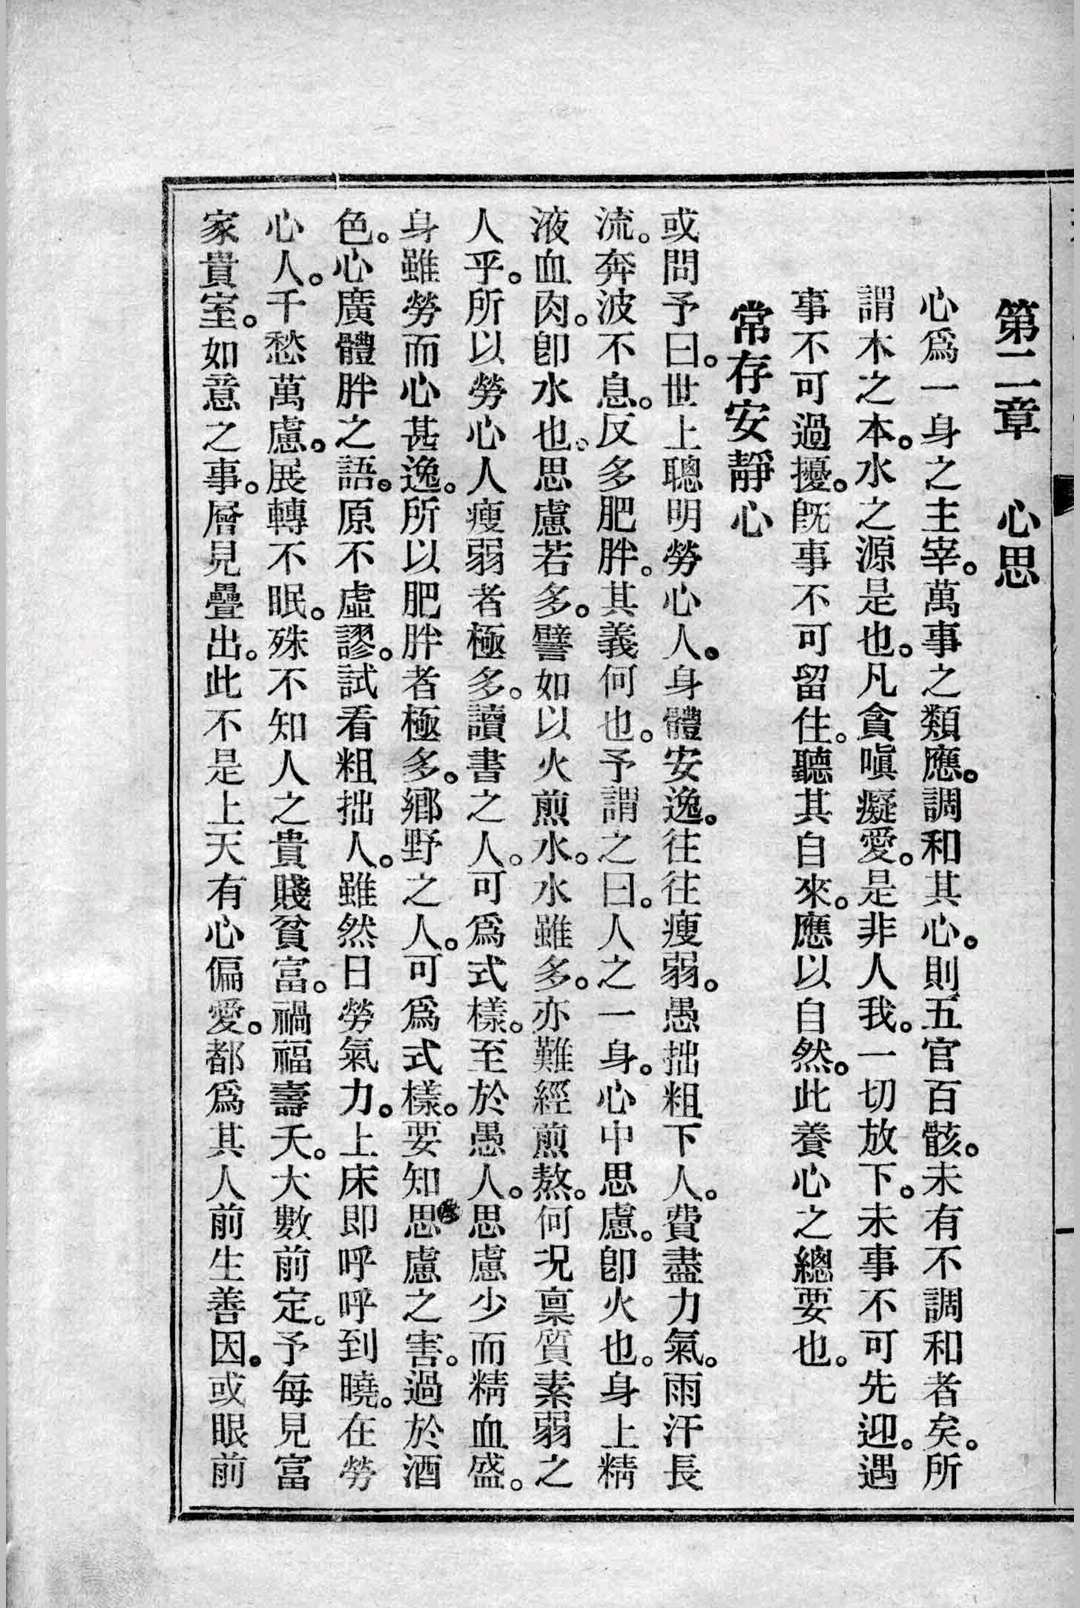 第二章　心思
心爲一身之主宰。萬事之類應。調和其心。則五官百骸。未有不調和者矣。所
謂木之本。水之源是也。凡貪嗔癡愛。是非人我。一切放下。未事不可先迎。遇
事不可過擾。旣事不可留住。聽其自來。應以自然。此養心之總要也。
常存安靜心
或問予曰。世上聰明勞心人。身體安逸。往往瘦弱。愚拙粗下人。費盡力氣。雨汗長
流。奔波不息。反多肥胖。其義何也。予謂之曰。人之一身。心中思慮。卽火也。身上精
液血肉。卽水也。思慮若多。譬如以火煎水。水雖多。亦難經煎熬。何况稟質素弱之
人乎。所以勞心人瘦弱者極多。讀書之人。可爲式樣。至於愚人。思慮少而精血盛。
身雖勞而心甚逸。所以肥胖者極多。鄕野之人。可爲式樣。要知思慮之害。過於酒
色。心廣體胖之語。原不虛謬。試看粗拙人。雖然日勞氣力。上床即呼呼到曉。在勞
心人。千愁萬慮。展轉不眠。殊不知人之貴賤貧富。禍福壽夭。大數前定。予每見富
家貴室。如意之事。層見疊出。此不是上天有心偏愛。都爲其人前生善因。或眼前